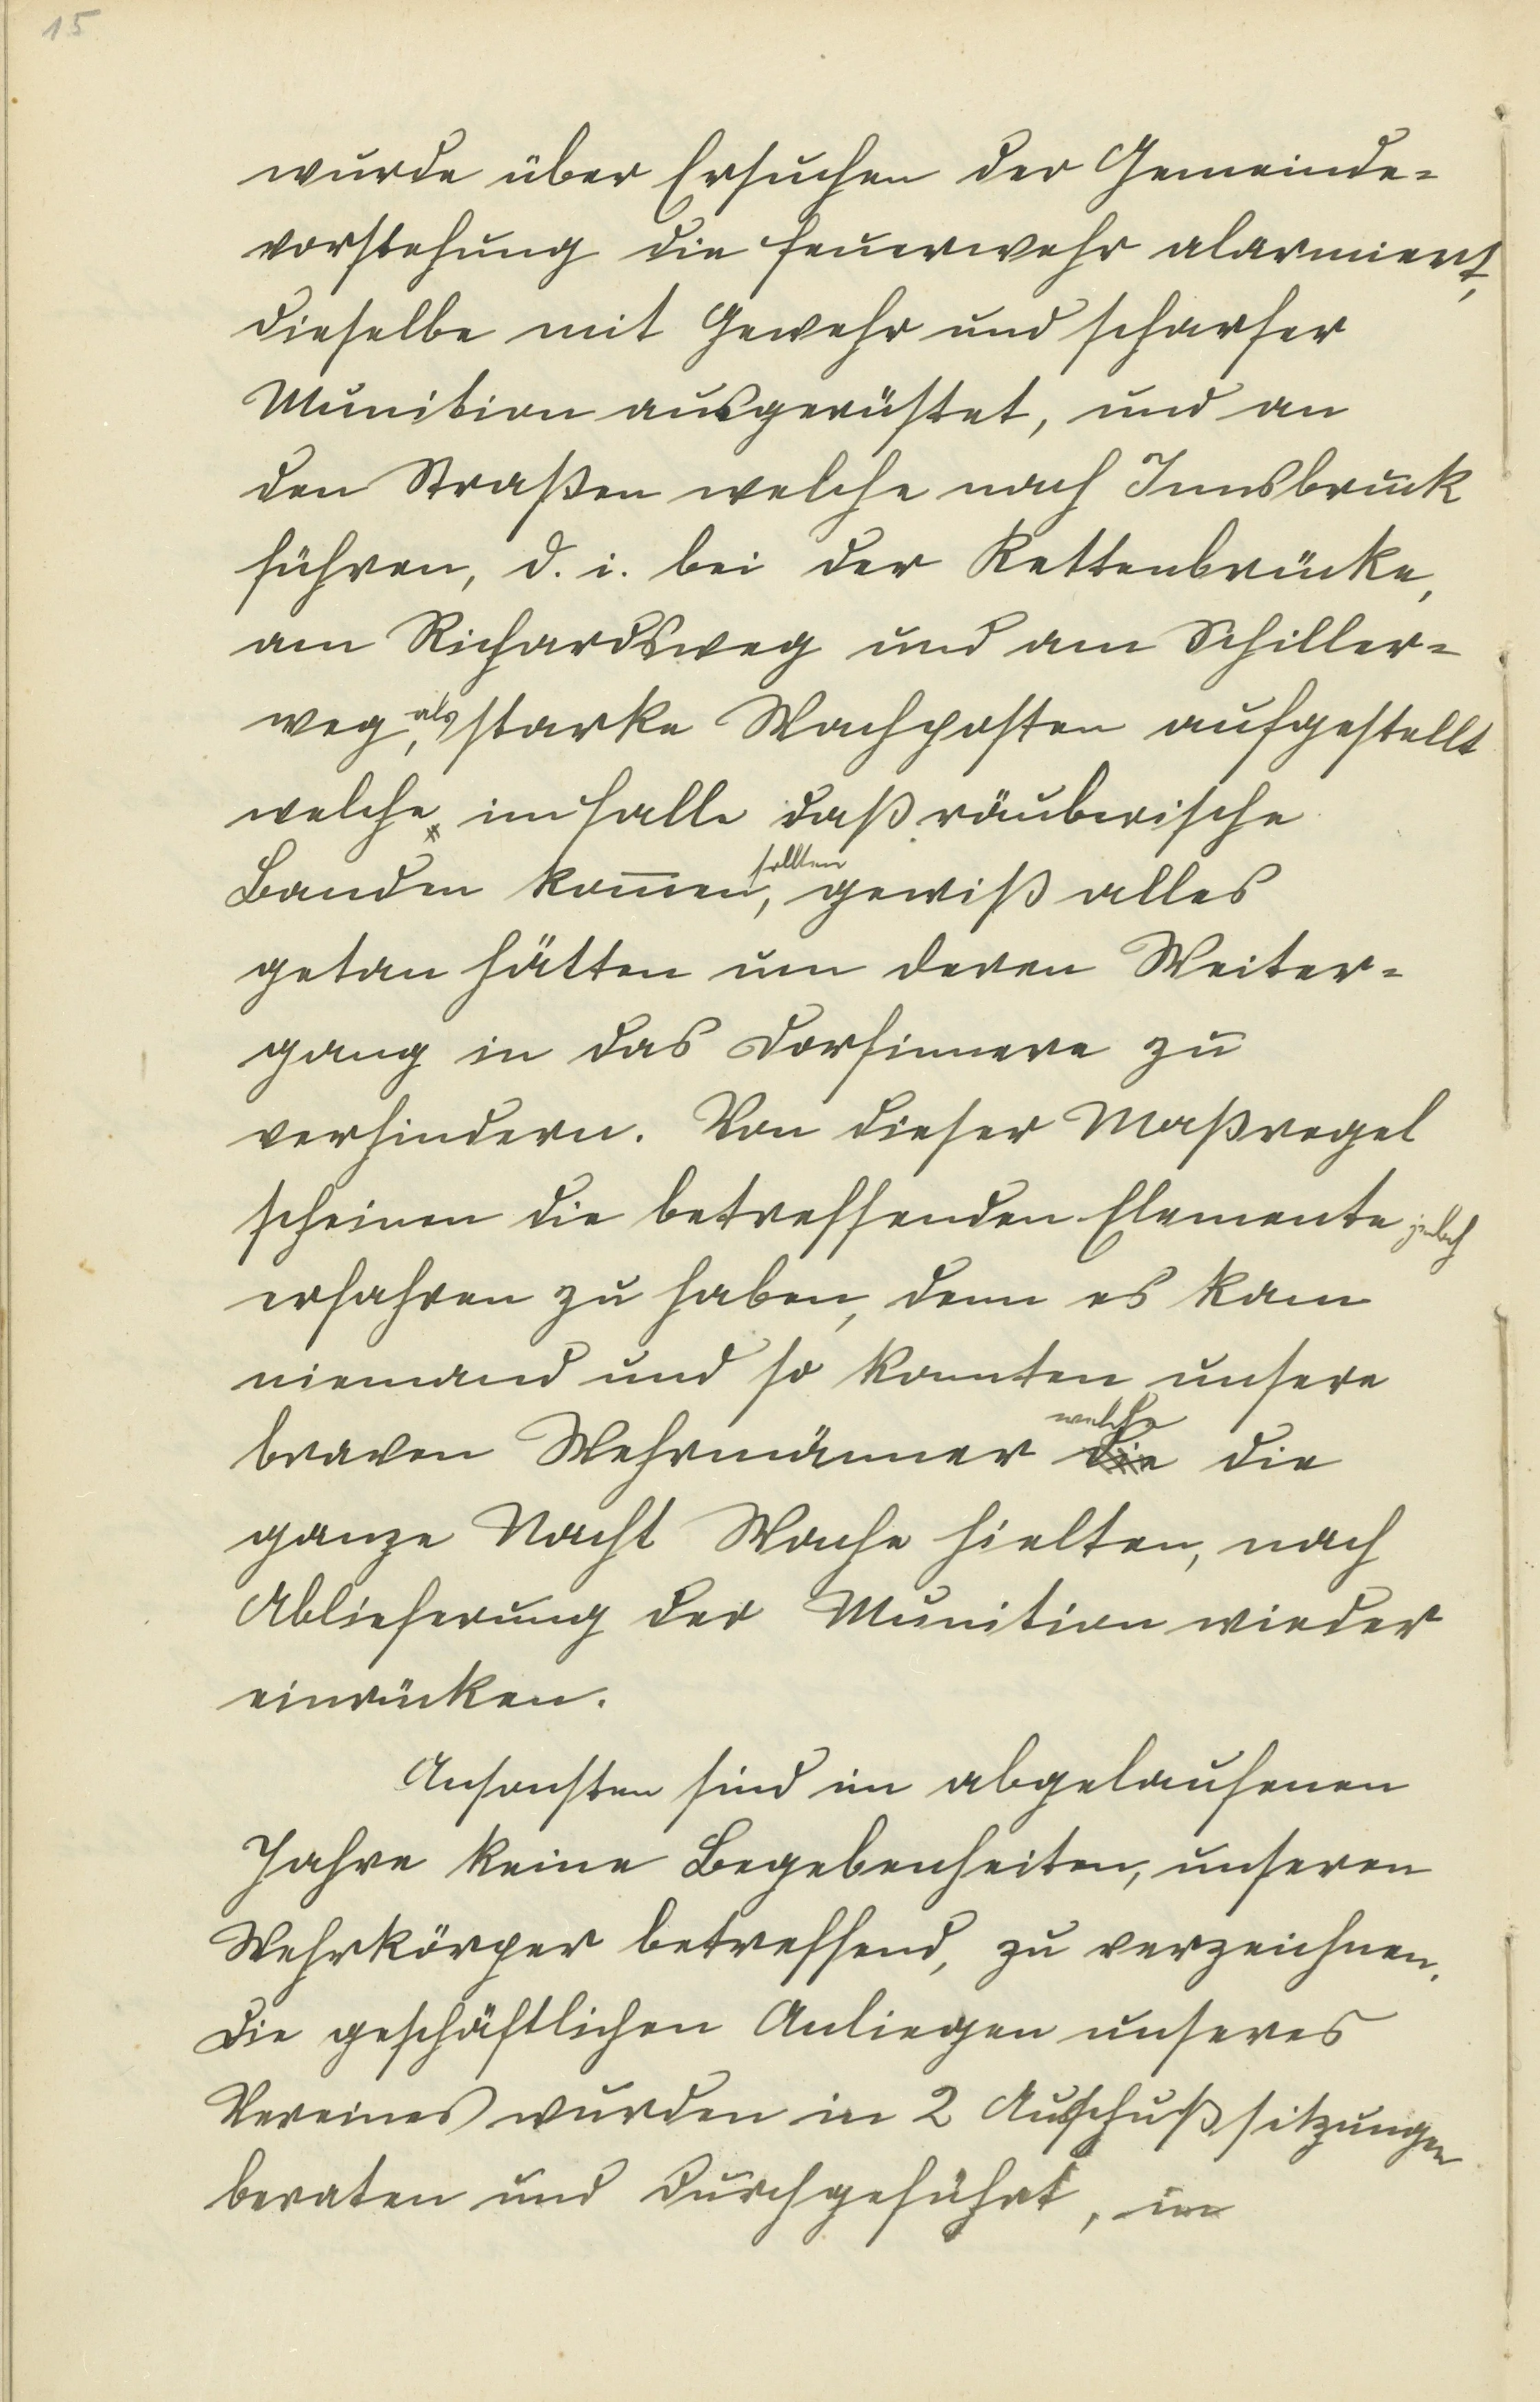 15
wurde über Ersuchen der Gemeinde=
vorstehung die Feuerwehr alarmiert,
dieselbe mit Gewehr und scharfer
Munition ausgerüstet, und an
den Straßen welche nach Innsbruck
führen, d. i. bei der Kettenbrücke,
am Richardsweg und am Schiller=
weg, als starke Wachposten aufgestellt
welche, im Falle daß räuberische
Banden kom̅en sollten, gewiß alles
getan hätten um deren Weiter=
gang in das Dorfinnere zu
verhindern. Von dieser Maßregel
scheinen die betreffenden Elemente jedoch
erfahren zu haben, denn es kam
niemand und so konnten unsere
braven Wehrmänner welche die die
ganze Nacht Wache hielten, nach
Ablieferung der Munition wieder
einrücken.
Ansonsten sind im abgelaufenen
Jahre keine Begebenheiten, unseren
Wehrkörper betreffend, zu verzeichnen.
Die geschäftlichen Anliegen unseres
Vereines wurden in 2 Ausschußsitzungen
beraten und durchgeführt, im